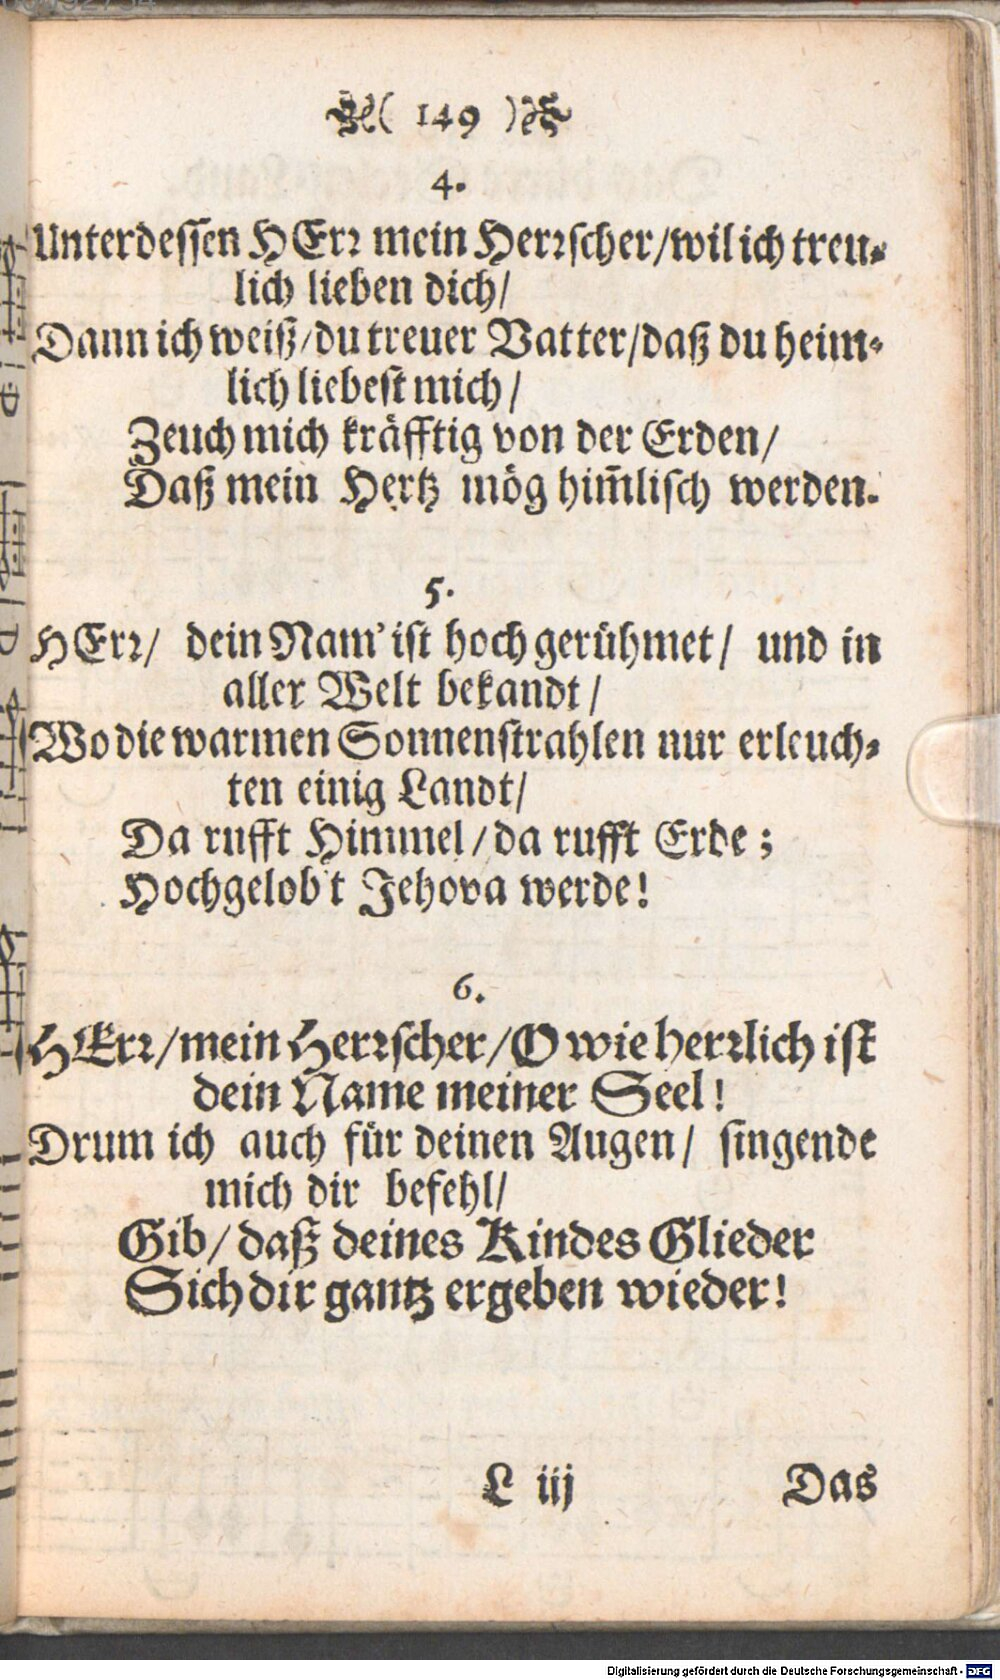 ( 149 )
4.
Unterdessen HErr mein Herrscher/wil ich treu-
lich lieben dich/
Dann ich weiß/du treuer Vatter/daß du heim-
lich liebest mich/
Zeuch mich kräfftig von der Erden/
Daß mein Hertz mög him̃lisch werden.
5.
HErr/ dein Nam' ist hoch gerühmet/ und in
aller Welt bekandt/
Wo die warmen Sonnenstrahlen nur erleuch-
ten einig Landt/
Da rufft Himmel/da rufft Erde;
Hochgelob't Jehova werde!
6.
HErr/mein Herrscher/O wie herrlich ist
dein Name meiner Seel!
Drum ich auch für deinen Augen/ singende
mich dir befehl/
Gib/daß deines Kindes Glieder
Sich dir gantz ergeben wieder!
L iij Das
Digitalisierung gefördert durch die Deutsche Forschungsgemeinschaft - DFG